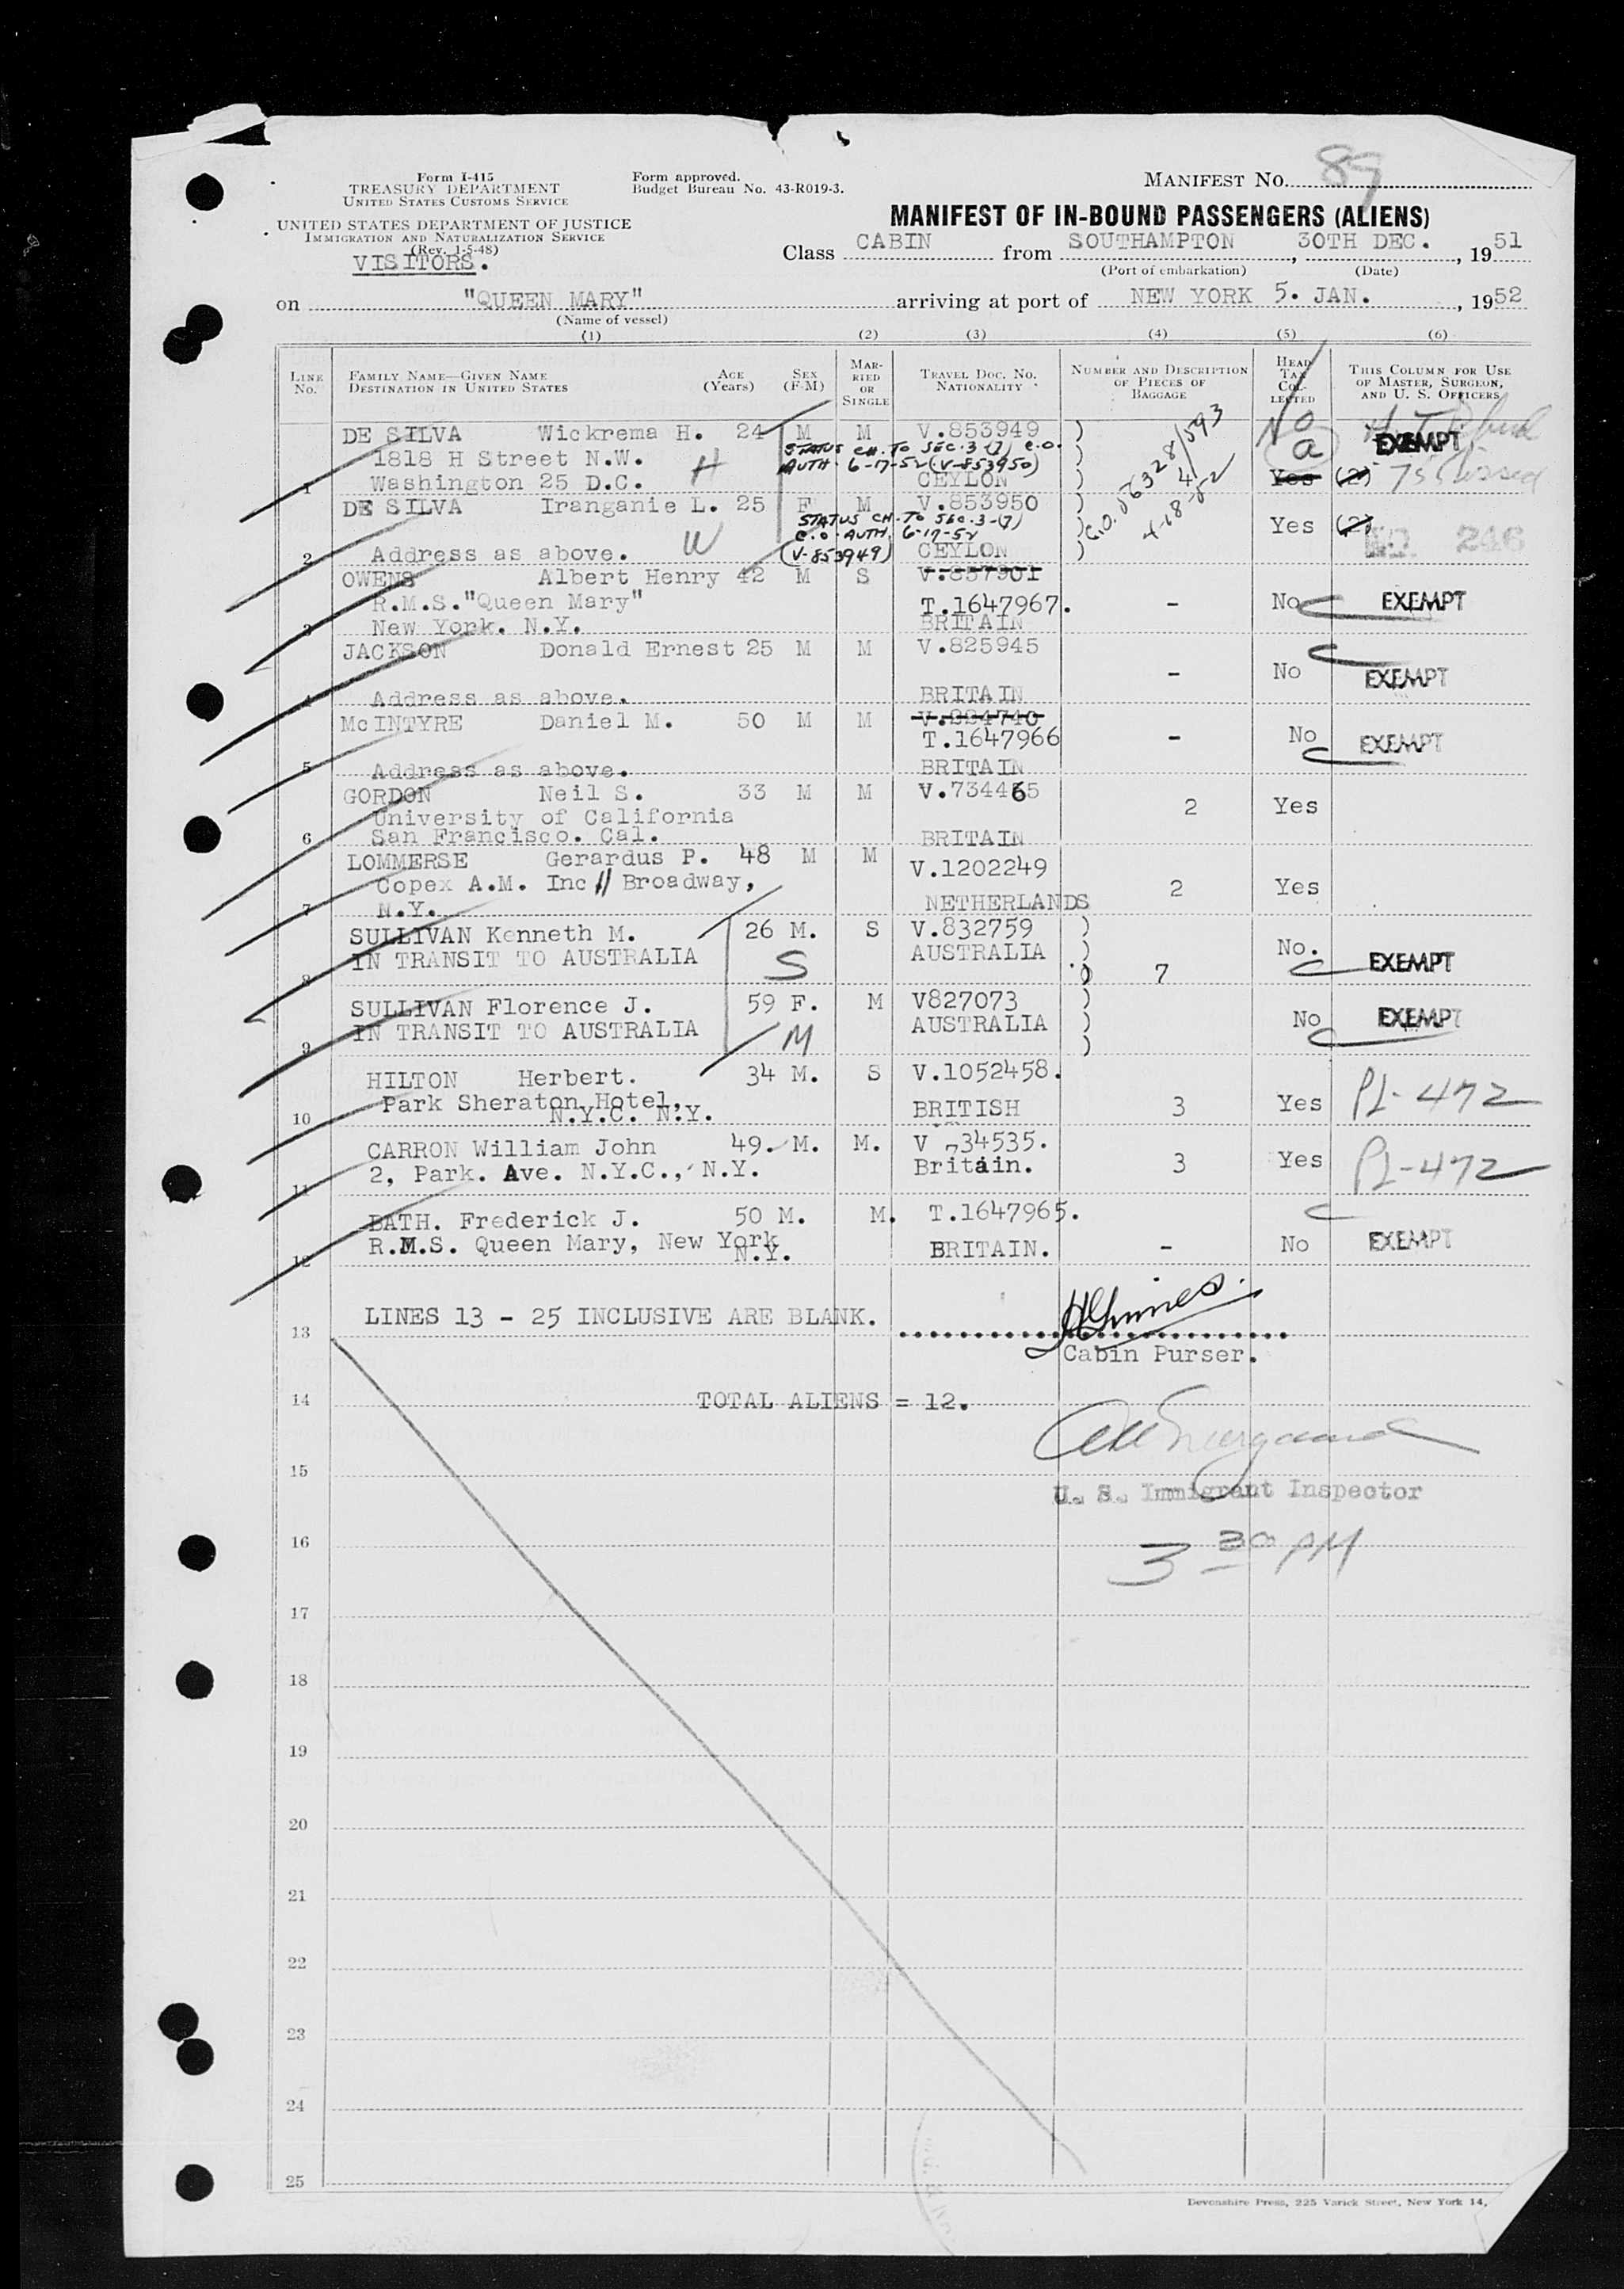 Form I-415
TREASURY DEPARTMENT
UNITED STATES CUSTOMS SERVICE
UNITED STATES DEPARTMENT OF JUSTICE
IMMIGRATION AND NATURALIZATION SERVICE
(Rev. 1-5-48)
VISITORS.
Form approved.
Budget Bureau No. 43-R019-3.
MANIFEST NO. 89
MANIFEST OF IN-BOUND PASSENGERS (ALIENS)
Class CABIN from SOUTHAMPTON, 30TH DEC., 1951
(Port of embarkation) (Date)
on "QUEEN MARY" arriving at port of NEW YORK 5. JAN., 1952
(Name of vessel)
(1) (2) (3) (4) (5) (6)
LINE No.
FAMILY NAME—GIVEN NAME
DESTINATION IN UNITED STATES
AGE (Years)
SEX (F-M)
MARRIED OR SINGLE
TRAVEL DOC. NO.
NATIONALITY
NUMBER AND DESCRIPTION OF PIECES OF BAGGAGE
HEAD TAX COLLECTED
THIS COLUMN FOR USE OF MASTER, SURGEON, AND U. S. OFFICERS
DE SILVA Wickrema H. 24 M M V.853949 ) No EXEMPT
STATUS CH. TO SEC. 3-(7) C.O.
1818 H Street N.W. H AUTH. 6-17-52 (V-853950) ) a
1 Washington 25 D.C. CEYLON ) Yes (2)
DE SILVA Iranganie L. 25 F M V.853950 )
STATUS CH. TO SEC. 3-(7)
W C.O. AUTH. 6-17-52 ) 4-18-52 Yes (2)
2 Address as above. (V-853949) CEYLON ) NO. 246
OWENS Albert Henry 42 M S V.857901
R.M.S."Queen Mary" T.1647967. - No EXEMPT
3 New York. N.Y. BRITAIN
JACKSON Donald Ernest 25 M M V.825945
- No EXEMPT
4 Address as above. BRITAIN
McINTYRE Daniel M. 50 M M V.224740
T.1647966 - No EXEMPT
5 Address as above. BRITAIN
GORDON Neil S. 33 M M V.734465
University of California 2 Yes
6 San Francisco. Cal. BRITAIN
LOMMERSE Gerardus P. 48 M M V.1202249
Copex A.M. Inc 11 Broadway, 2 Yes
7 N.Y. NETHERLANDS
SULLIVAN Kenneth M. 26 M. S V.832759 )
IN TRANSIT TO AUSTRALIA S AUSTRALIA ) No. EXEMPT
8 ) 7
SULLIVAN Florence J. 59 F. M V827073 )
IN TRANSIT TO AUSTRALIA M AUSTRALIA ) No EXEMPT
9 )
HILTON Herbert. 34 M. S V.1052458.
Park Sheraton Hotel, BRITISH 3 Yes PL-472
10 N.Y.C. N.Y.
CARRON William John 49. M. M. V 734535.
2, Park. Ave. N.Y.C., N.Y. Britain. 3 Yes PL-472
11
BATH. Frederick J. 50 M. M. T.1647965.
R.M.S. Queen Mary, New York BRITAIN. - No EXEMPT
12 N.Y.
LINES 13 - 25 INCLUSIVE ARE BLANK.
13
Cabin Purser.
14 TOTAL ALIENS = 12.
15
U. S. Immigrant Inspector
16 3 30 PM
17
18
19
20
21
22
23
24
25
Devonshire Press, 225 Varick Street, New York 14,